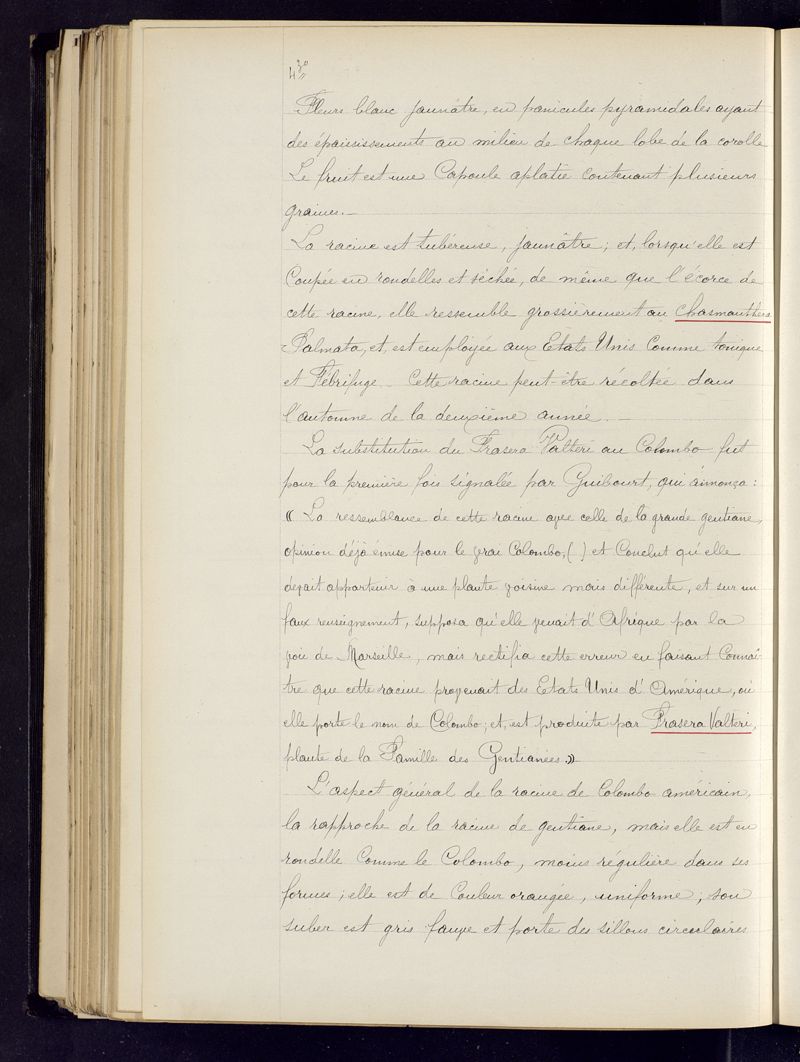 43º
Fleurs blanc jaunâtre, en panicules pyramidales ayant
des épaississements au milieu de chaque lobe de la corolle
Le fruit est une Capsule aplatie contenant plusieurs
graines.—
La racine est tubéreuse, jaunâtre; et, lorsqu'elle est
Coupée en rondelles et séchée, de même que l'écorce de
cette racine, elle ressemble grossièrement au Chasmanthera
Palmata, et, est employée aux Etats Unis Comme tonique
et Fébrifuge — Cette racine peut-être récoltée dans
l'automne de la deuxième année. —
La substitution du Frasera Valteri au Colombo fut
pour la première fois signalée par Guibourt, qui annonça:
« La ressemblance de cette racine avec celle de la grande gentiane,
opinion déjà émise pour le vrai Colombo, ( ) et Conclut qu'elle
devait appartenir à une plante voisine mais différente, et sur un
faux renseignement, supposa qu'elle venait d'Afrique par la
voie de Marseille, mais rectifia cette erreur en faisant Connaî-
tre que cette racine provenait des Etats Unis d'Amérique, où
elle porte le nom de Colombo; et, est produite par Frasera Valteri,
plante de la Famille des Gentianées »
L'aspect général de la racine de Colombo américain,
la rapproche de la racine de gentiane, mais elle est en
rondelle Comme le Colombo, moins régulière dans ses
formes; elle est de Couleur orangée, uniforme; son
suber est gris fauve et porte des sillons circulaires